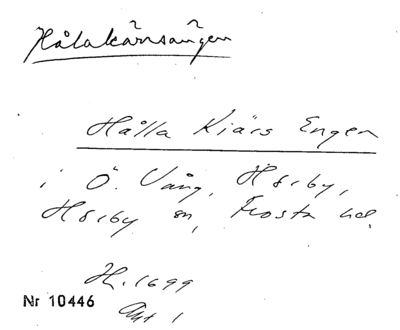 Hålakärsängen
Hålla Kiärs Engen
i Ö. Vång, Hörby,
Hörby sn, Frosta hd.
H. 1699
Nr 10446
Akt 1